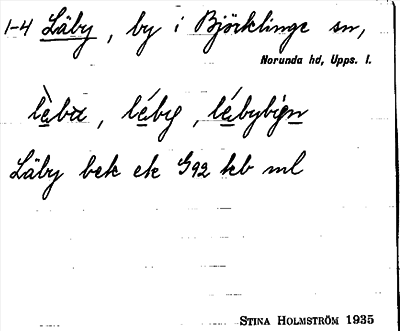 1-4 Läby, by i Björklinge sn,
Norunda hd, Upps. l.
lȁbα, láby, lábybign
Läby bek ek G92 kb ml
STINA HOLMSTRÖM 1935